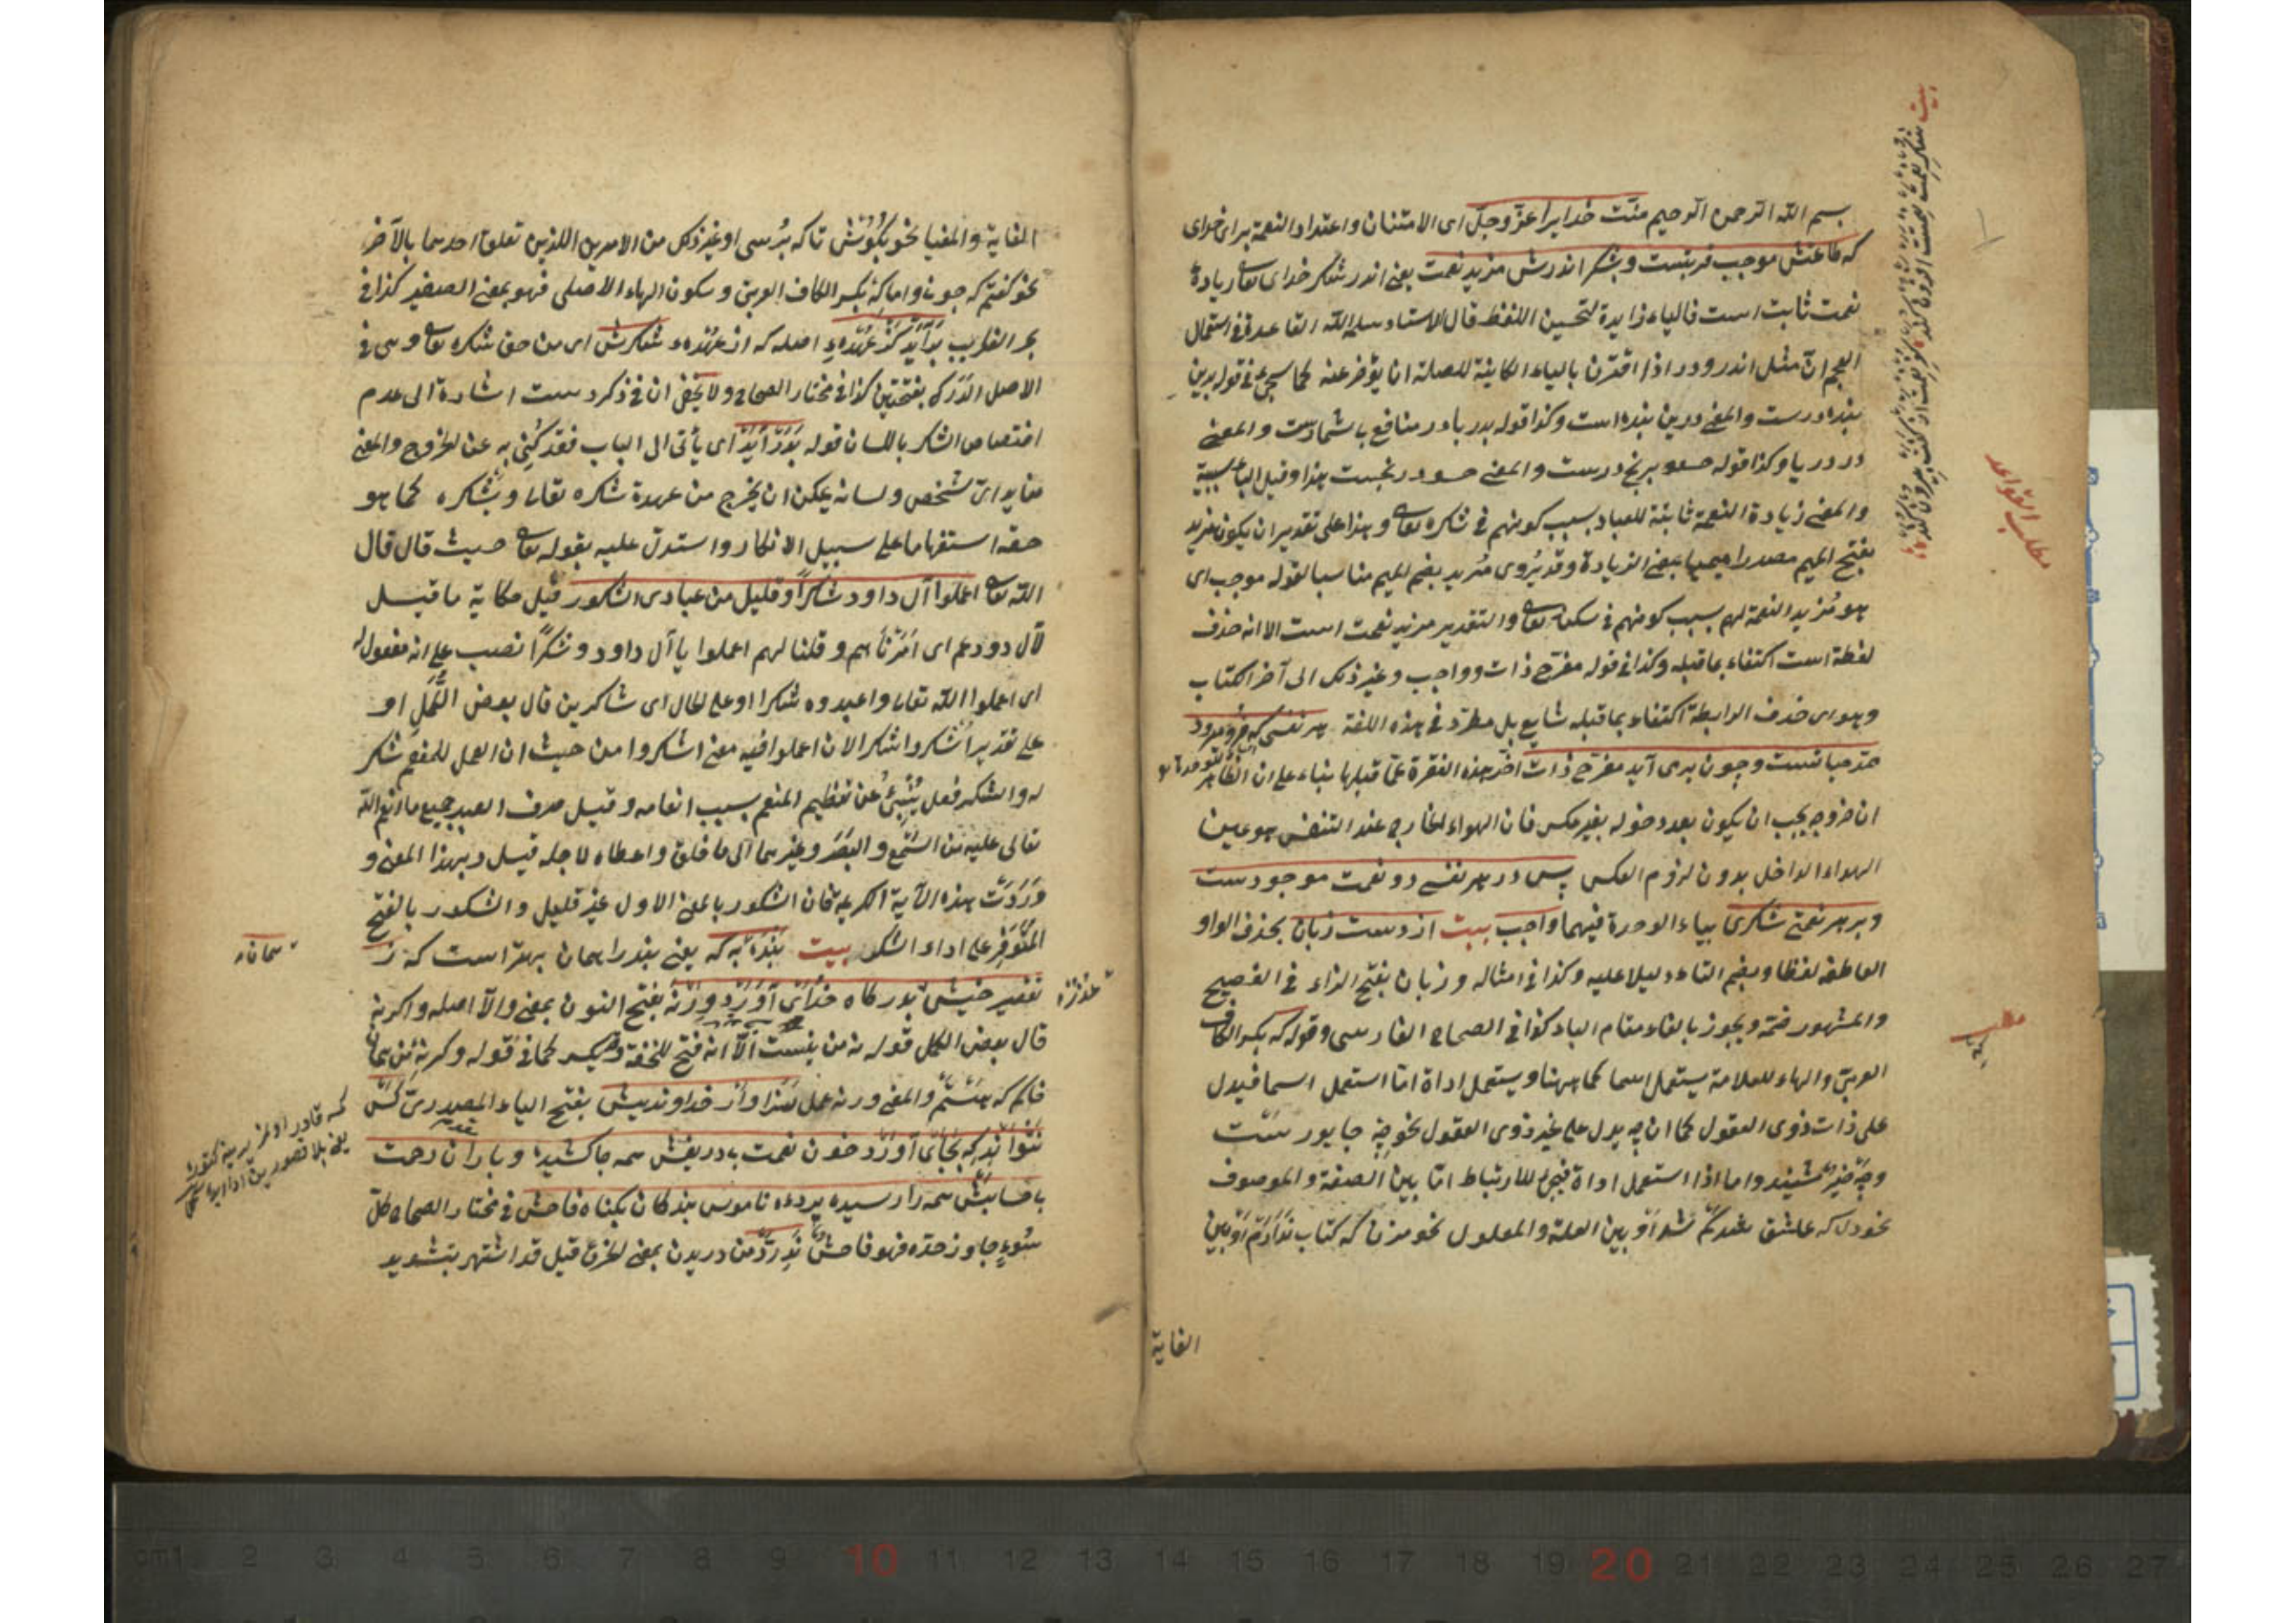 بسم الله الرحمن الرحيم منّت خدايرا عزّ وجلّ اى الامتنان واعتداد النعمة براى خداى
كه طاعتش موجب قربتست وبشكر اندرش مزيد نعمت يعنى اندر شكر خداى تعا زيادهٔ
نعمت ثابت است فالباء زايدة لتحسين اللفظ قال الاستاد سلمه الله القاعدة فى استعمال
العجم انّ مثل اندر ودر اذا اقترن بالباء الكاينة للصلة ان يؤخر عنه كما سيجئ فى قوله بدين
بنده درست والمعنى درين بنده است وكذا قوله بدريا در منافع بى شمارست والمعنى
در دريا وكذا قوله حسود برنج درست والمعنى حسود در رنجست هذا وقيل الباء سببية
والمعنى زيادة النعمة ثابتة للعباد بسبب كونهم فى شكره تعا وهذا على تقدير ان يكون مزيد
بفتح الميم مصدرا ميميا بمعنى الزيادة وقد يُروى مُزيد بضم الميم مناسبا لقوله موجب اى
هو مُزيد النعمة لهم بسبب كونهم فى شكره تعا والتقدير مزيد نعمت است الا انه حذف
لفظة است اكتفاء بما قبله وكذا فى قوله مفرّح ذات وواجب وغير ذلك الى آخر الكتاب
وهو اى حذف الرابطة اكتفاء بما قبله شايع بل مطّرد فى هذه اللغة هر نفسى كه فرو ميرود
ممدّ حياتست وچون برمى آيد مفرّح ذات اخّر هذه الفقرة عمّا قبلها بناء على ان الظاهر
ان خروجه يجب ان يكون بعد دخوله بغير عكس فان الهواء الخارج عند التنفس هو عين
الهواء الداخل بدون لزوم العكس پس در هر نفسى دو نعمت موجودست
وبر هر نعمتى شكرى بياء الوحدة فيهما واجب بيت از دست زبان بحذف الواو
العاطفة لفظا وبضم التاء دليلا عليه وكذا فى امثاله وزبان بفتح الزاء فى الفصيح
والمشهور ضمّه ويجوز بالفاء مقام الباء كذا فى الصحاح الفارسى وقوله كه بكسر الكاف
العربىّ والهاء للعلامة يستعمل اسما كما ههنا ويستعمل اداة امّا استعمل اسما فيدل
على ذات ذوى العقول كما ان چه يدل على غير ذوى العقول نحو چه جا يورست
وچه خبر شنيد واما اذا استعمل اداة فيجئ للارتباط امّا بين الصفة والموصوف
نحو دل كه عاشق شد او بين العلة والمعلول نحو مزن كه كتاب ندارم او بين
الغاية
مطلب القواعد
مطلب
كه
الغاية والمغيا نحو بكوش تا كه برسى او غير ذلك من الامرين اللذين تعلق احدهما بالآخر
نحو كفتم كه جون واما كه بكسر الكاف العربىّ وسكون الهاء الاصلى فهو بمعنى الصغير كذا فى
بحر الغرايب برآيد كز عهدهٔ اصله كه از عهدهٔ شكرش اى من حق شكره تعا وهى فى
الاصل الدَرَك بفتحتين كذا فى مختار الصحاح ولا يخفى ان فى ذكر دست اشارة الى عدم
اختصاص الشكر باللسان قوله بدر آيد اى يأتى الى الباب فقد كُنى به عن الخروج والمعنى
من يد اىّ شخص ولسانه يمكن ان يخرج من عهدة شكره تعالى ويشكره كما هو
حقه استفهاما على سبيل الانكار واستدل عليه بقوله تعا حيث قال قال
الله تعا اعملوا آل داود شكرا وقليل من عبادى الشكور قيل حكاية ما قيل
لآل داود عم اى امرناهم وقلنا لهم اعملوا يا آل داود وشكرًا نصب على انه مفعول له
اى اعملوا الله تعالى واعبدوه شكرا او على الحال اى شاكرين قال بعض الكُمّل او
على تقدير اُشكروا شكرا لان اعملوا فيه معنى اشكروا من حيث ان العمل للمنعم شكر
له والشكر فعل يُنبئ عن تعظيم المنعم بسبب انعامه وقيل صرف العبد جميع ما انعم الله
تعالى عليه من السَمع والبَصر وغيرهما الى ما خلق واعطاه لاجله قيل وبهذا المعنى و
وَرَدَت هذه الآية الكريمة فان الشكور بالمعنى الاول غير قليل والشكور بالفتح
المتوفر على اداء الشكر بيت بنده به كه يعنى بنده را همان بهتر است كه ز
تقصير خويش بدركاه خداى آورد ورنه بفتح النون بمعنى والّا اصله واكر نه
قال بعض الكمل قوله نه من نيست الّا انه فتح للخفة كما فى قوله وكر نه من همان
خاكم كه هستم والمعنى ور نه عمل سزاوار خداونديش بفتح الياء المصدرى كس
نتواند كه بجاى آورد خوان نعمت بى دريغش همه جا كشيده وباران رحمت
بى حسابش همه را رسيده پردهٔ ناموس بندكان بكناه فاحش فى مختار الصحاح كلّ
سوءٍ جاوز حدّه فهو فاحش ندرد من دريدن بمعنى الخرق قيل قد اشتهر بتشديد
عذر